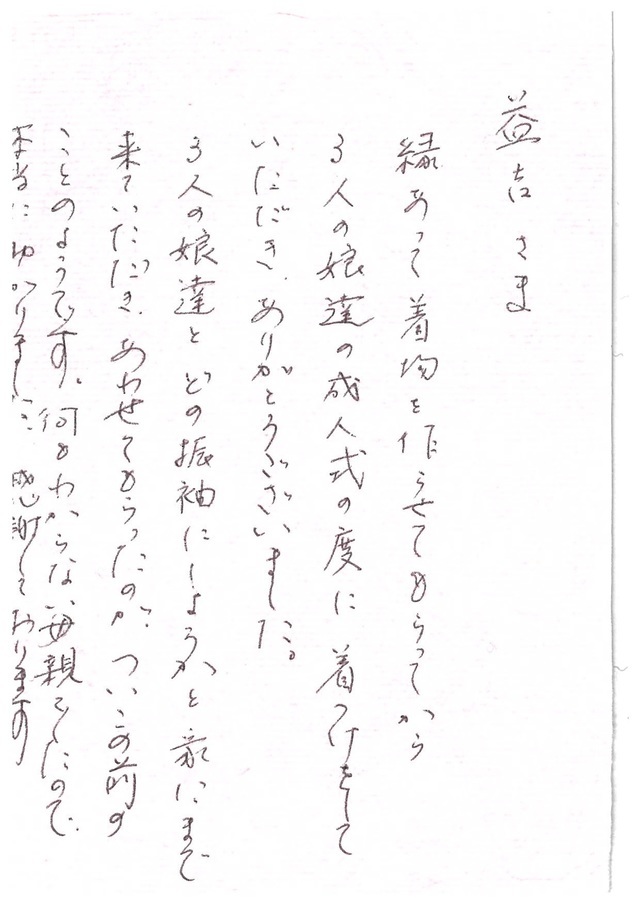 益吉さま
縁あって着物を作らせてもらってから
3人の娘達の成人式の度に着つけをして
いただき、ありがとうございました。
3人の娘達とどの振袖にしようかと家にまで
来ていただき、あわせてもらったのが、ついこの前の
ことのようです。何もわからない母親でしたので、
本当にありました 感謝しております